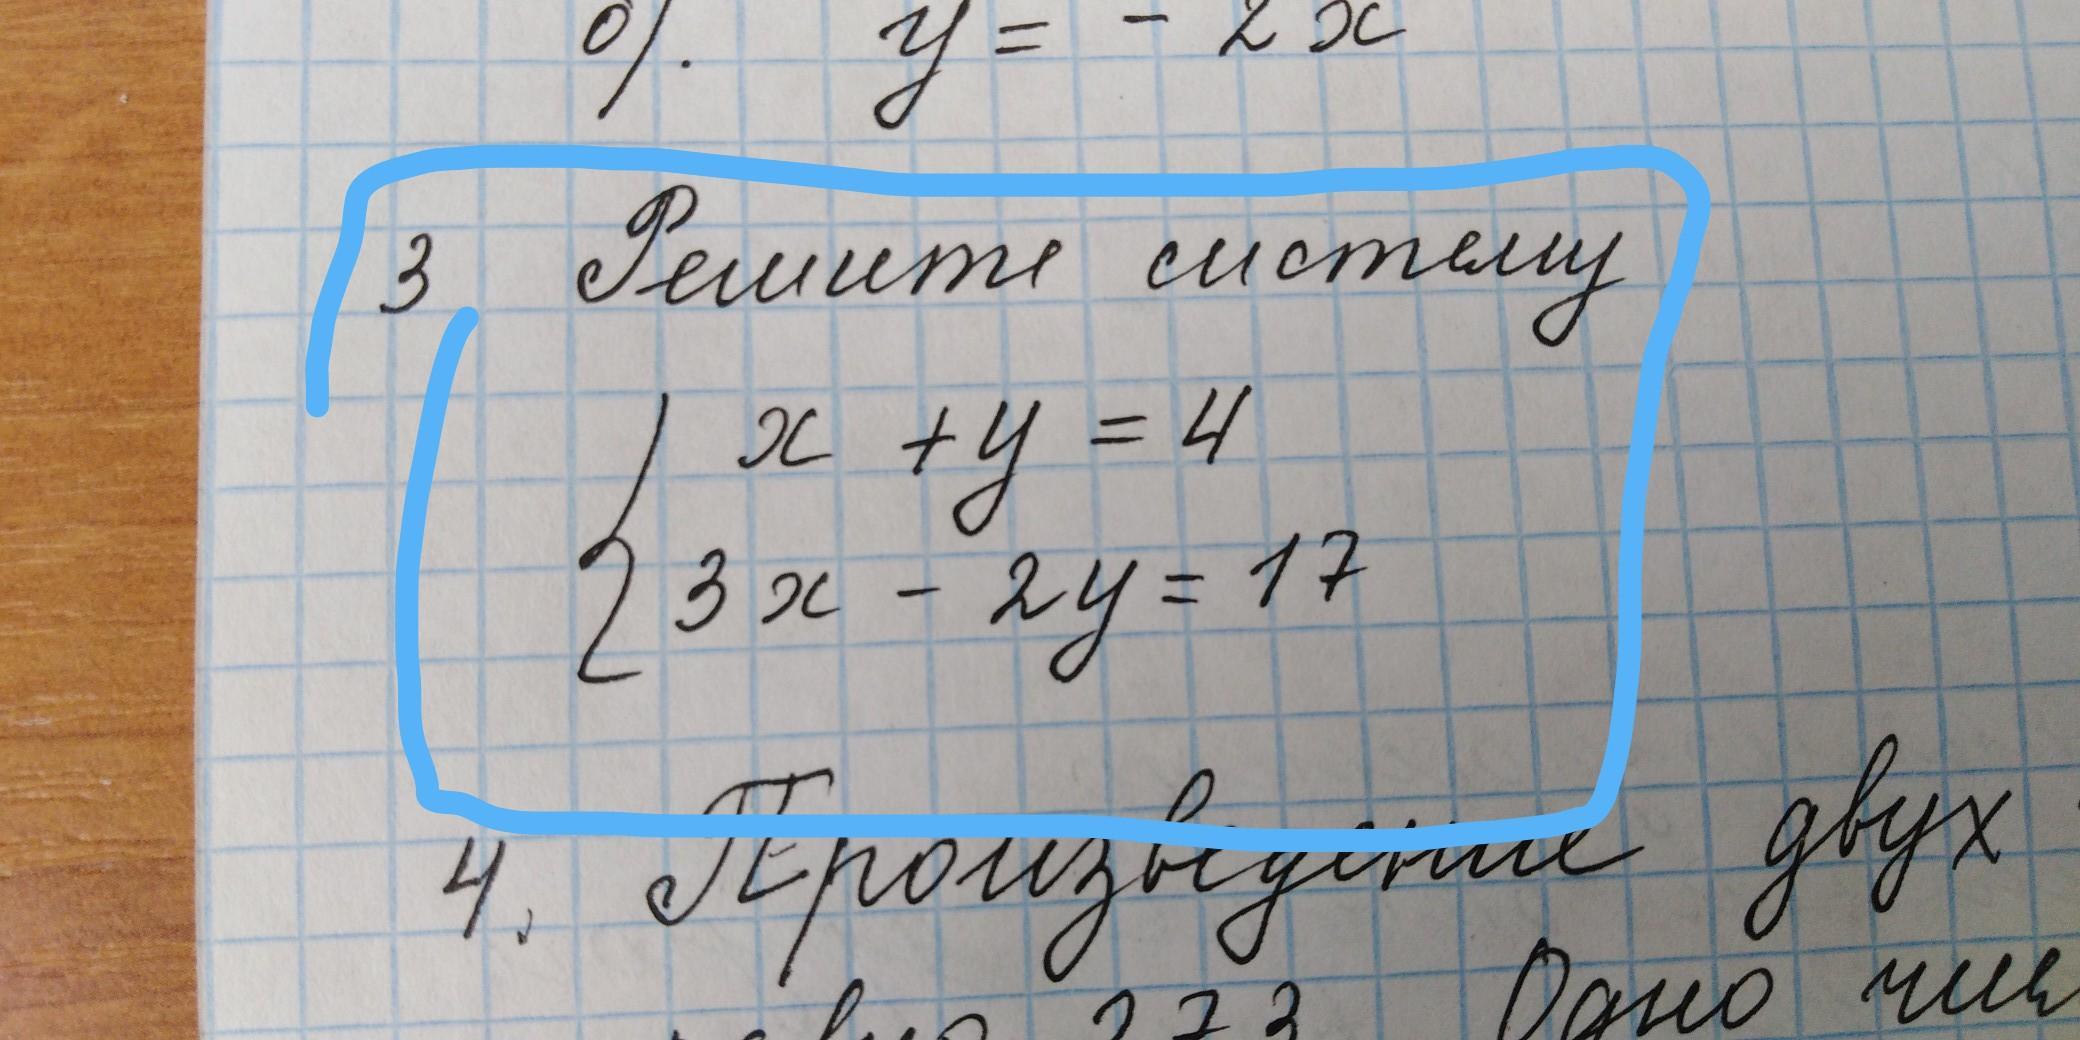 б). y = - 2x
3 Решите систему
x + y = 4
3x - 2y = 17
4. Произведение двух
273 Одно